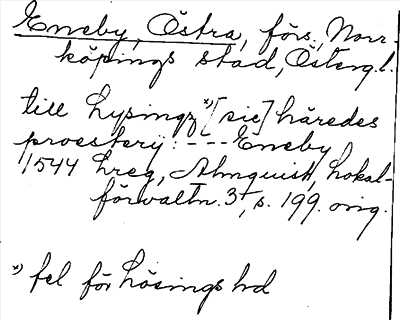 Eneby, Östra, förs., Norr-
köpings stad, Östergl.
till Lysingz *)[sic] häredes
proesterij: --- Eneby
1544 Lreg, Almquist, Lokal-
förvaltn. 3, s. 199. orig.
*) fel för Lösings hd